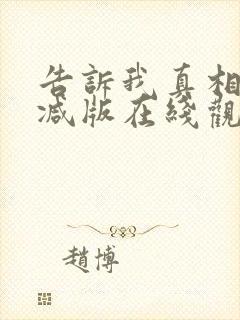 告訴我真相
減版在綫觀
趙博